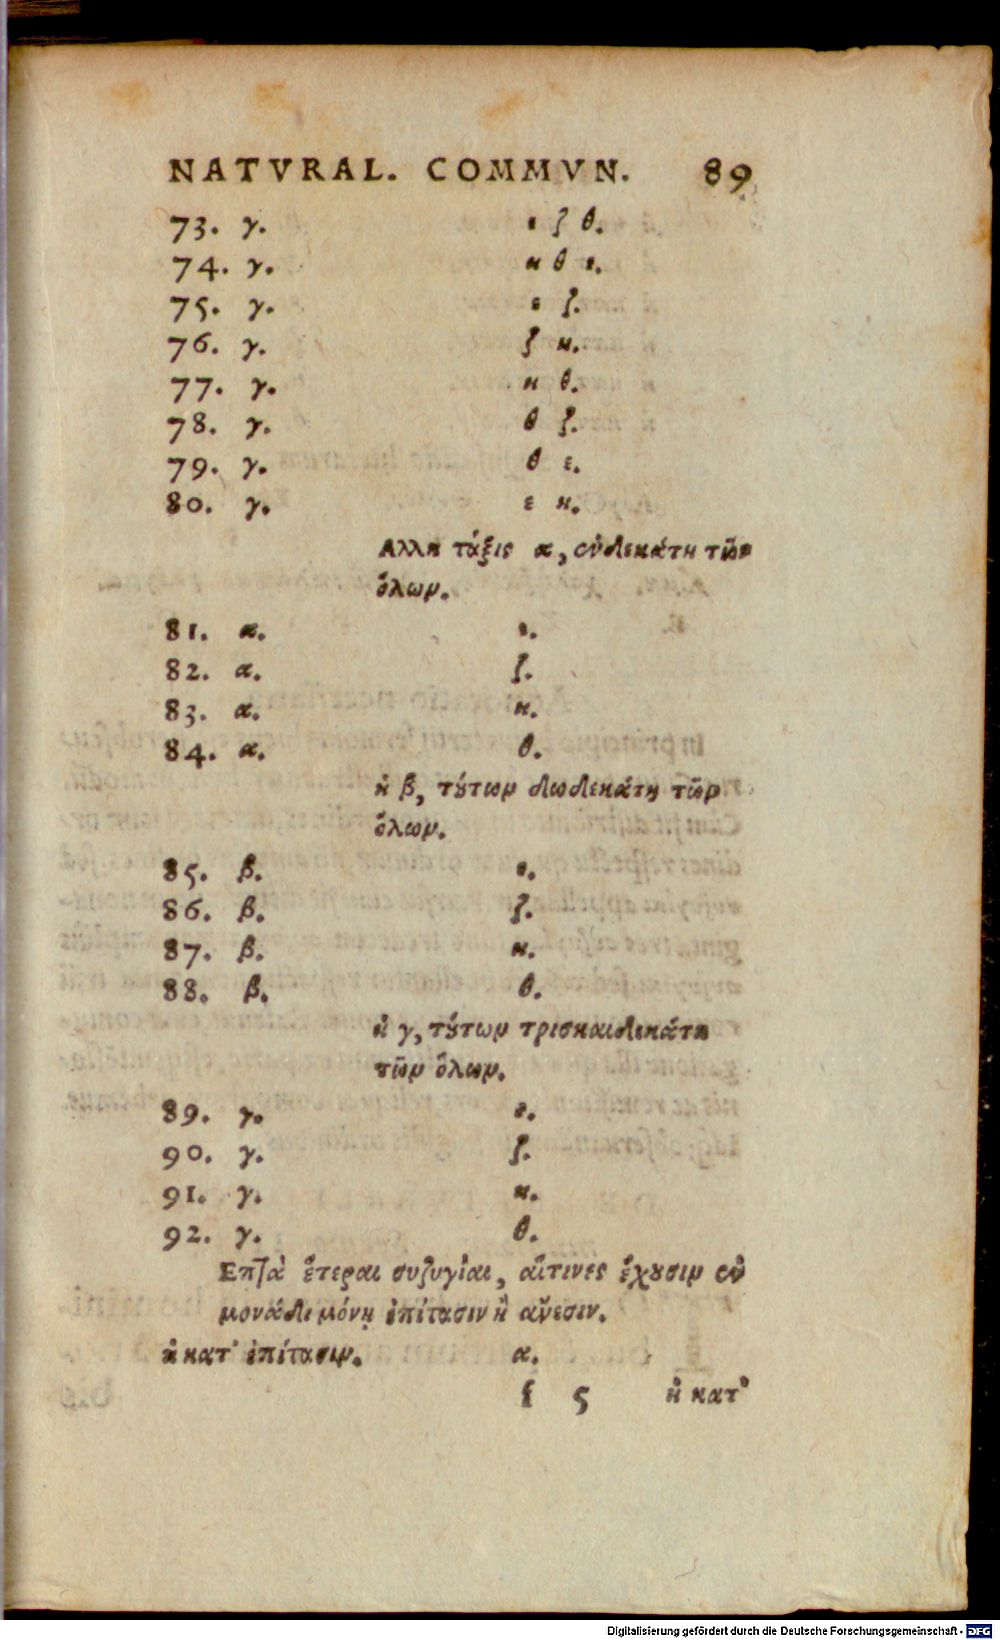 NATVRAL. COMMVN. 89
73. γ. ε ζ θ.
74. γ. κ θ ε.
75. γ. ε ζ.
76. γ. ζ κ.
77. γ. κ θ.
78. γ. θ ζ.
79. γ. θ ε.
80. γ. ε κ.
Αλλη τάξις α, ἑνδεκάτη τῶν
ὅλων.
81. α. ε.
82. α. ζ.
83. α. κ.
84. α. θ.
ἡ β, τȣ́των δωδεκάτη τῶν
ὅλων.
85. β. ε.
86. β. ζ.
87. β. κ.
88. β. θ.
ἡ γ, τȣ́των τρισκαιδεκάτη
τῶν ὅλων.
89. γ. ε.
90. γ. ζ.
91. γ. κ.
92. γ. θ.
Επτὰ ἕτεραι συζυγίαι, αἵτινες ἔχȣσιν ἐν
μονάδι μόνῃ ἐπίτασιν ἢ ἄνεσιν.
ἡ κατ' ἐπίτασιν. α.
f 5 ἡ κατ'
Digitalisierung gefördert durch die Deutsche Forschungsgemeinschaft - DFG